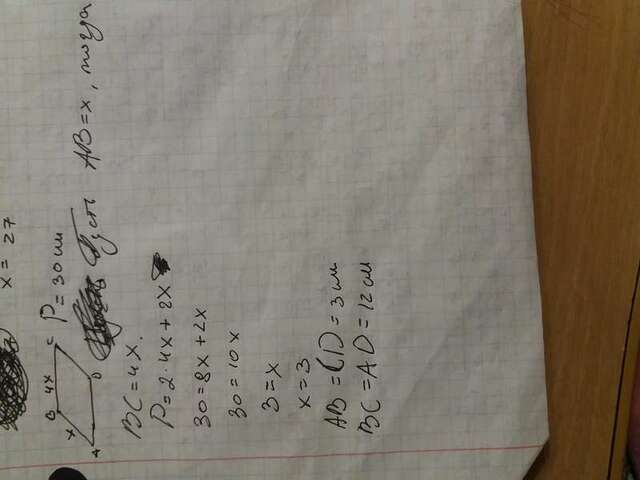 x = 27
B 4x C P = 30 см
x
A D
Пусть AB = x, тогда
BC = 4x.
P = 2·4x + 2x
30 = 8x + 2x
30 = 10x
3 = x
x = 3
AB = CD = 3 см
BC = AD = 12 см